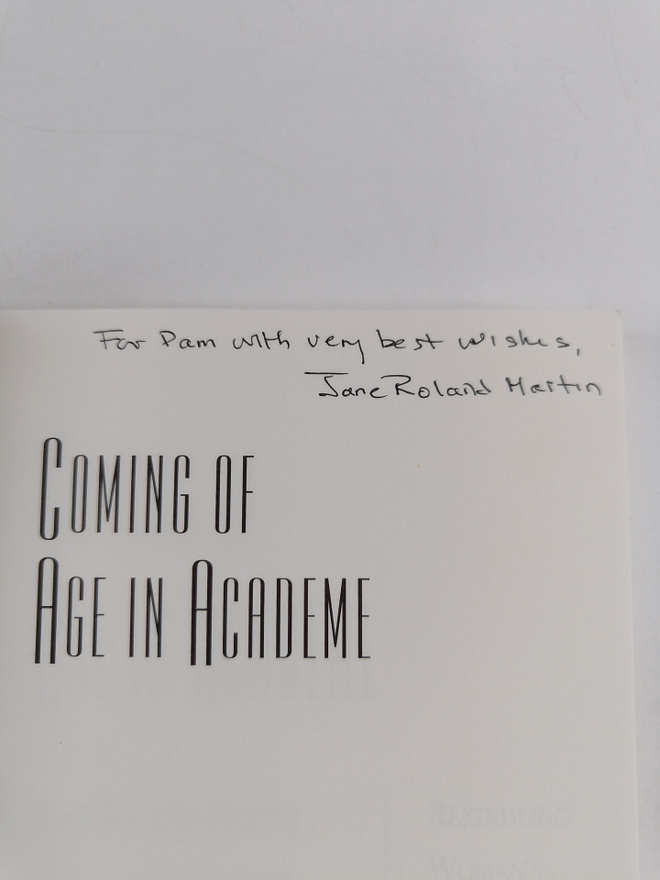 For Pam with very best wishes,
Jane Roland Martin
COMING OF
AGE IN ACADEME
REKINDLING
WOMEN'S